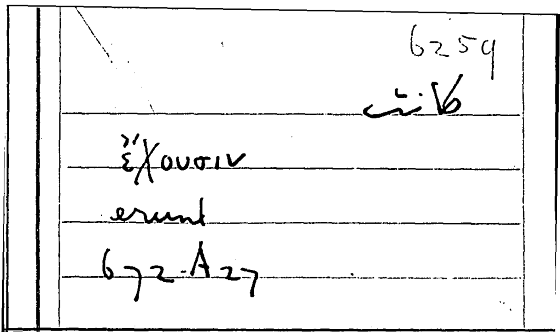 6259
كانت
ἔχουσιν
erunt
672-A27